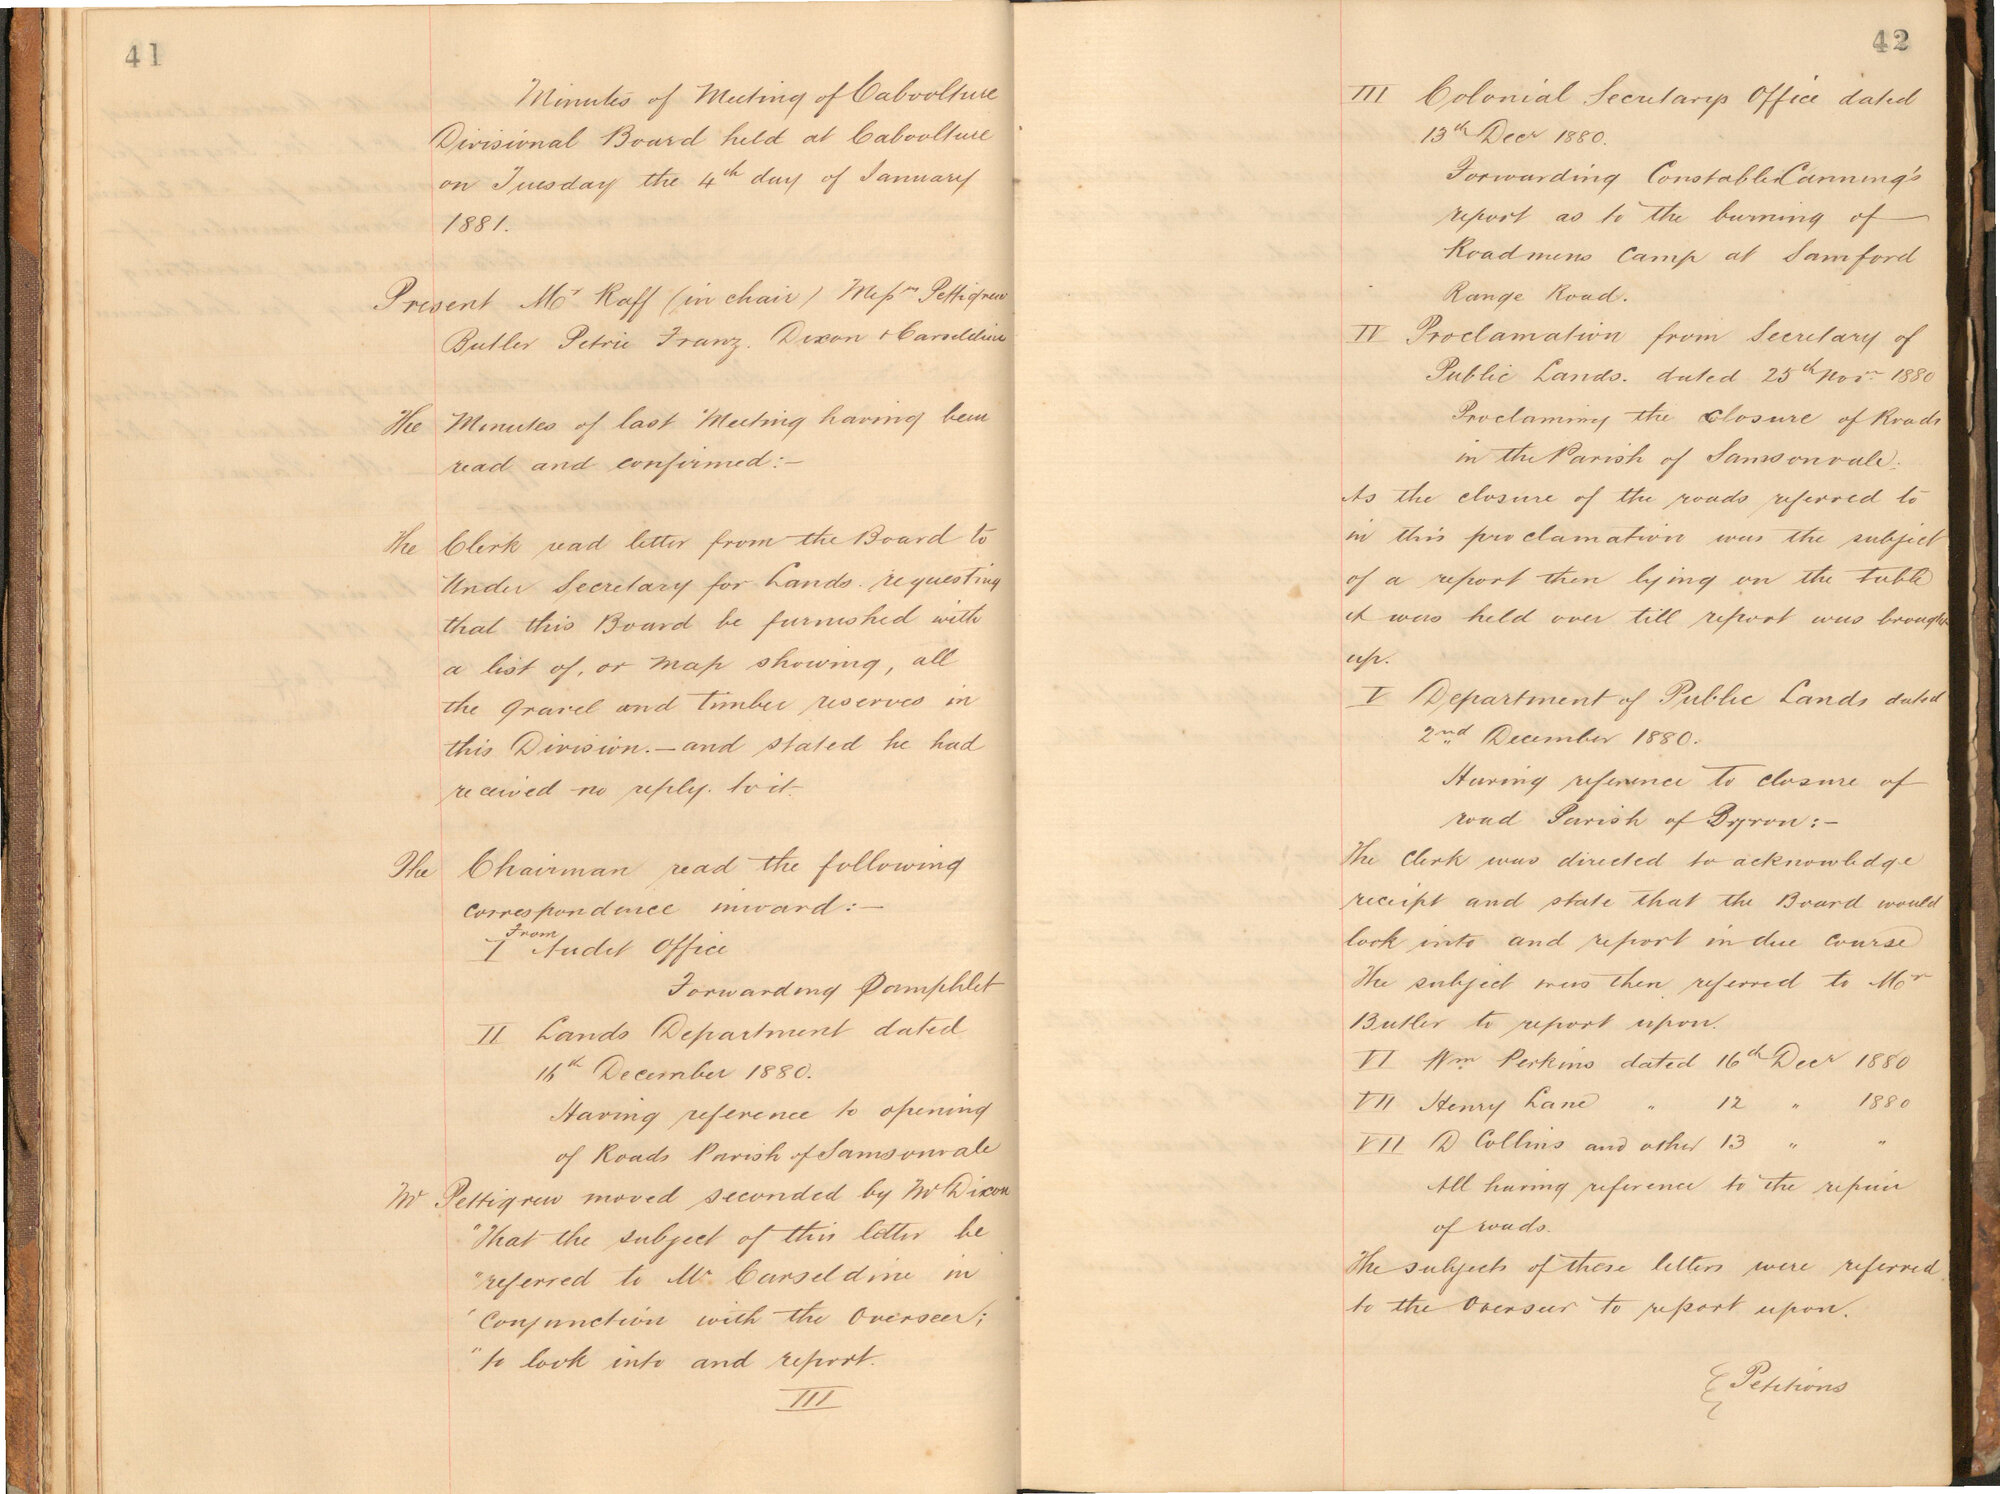 41
Minutes of Meeting of Caboolture
Divisional Board held at Caboolture
on Tuesday the 4th day of January
1881.
Present Mr Raff (in chair) Messrs Pettigrew
Butler Petrie Franz. Dixon & Carseldine
The Minutes of last Meeting having been
read and confirmed:—
The Clerk read letter from the Board to
Under Secretary for Lands. requesting
that this Board be furnished with
a list of, or map showing, all
the gravel and timber reserves in
this Division.—and stated he had
received no reply. to it.
The Chairman read the following
correspondence inward:—
From
I Audit Office
Forwarding Pamphlet
II Lands Department dated
16th December 1880.
Having reference to opening
of Roads Parish of Samsonvale
Mr Pettigrew moved seconded by Mr Dixon
"That the subject of this letter be
"referred to Mr Carseldine in
'conjunction with the Overseer;
"to look into and report.
III
42
III Colonial Secretarys Office dated
13th Decr 1880.
Forwarding Constable Canning's
report as to the burning of
Roadmens Camp at Samford
Range Road.
IV Proclamation from Secretary of
Public Lands. dated 25th Novr 1880
Proclaiming the closure of Roads
in the Parish of Samsonvale:
As the closure of the roads referred to
in this proclamation was the subject
of a report then lying on the table
it was held over till report was brought
up.
V Department of Public Lands dated
2nd December 1880.
Having reference to closure of
road Parish of Byron:—
The Clerk was directed to acknowledge
receipt and state that the Board would
look into and report in due course
The subject was then referred to Mr
Butler to report upon.
VI Wm Perkins dated 16th Decr 1880
VII Henry Lane " 12 " 1880
VII D Collins and other 13 " "
All having reference to the repair
of roads.
The subjects of these letters were referred
to the Overseer to report upon.
Petitions